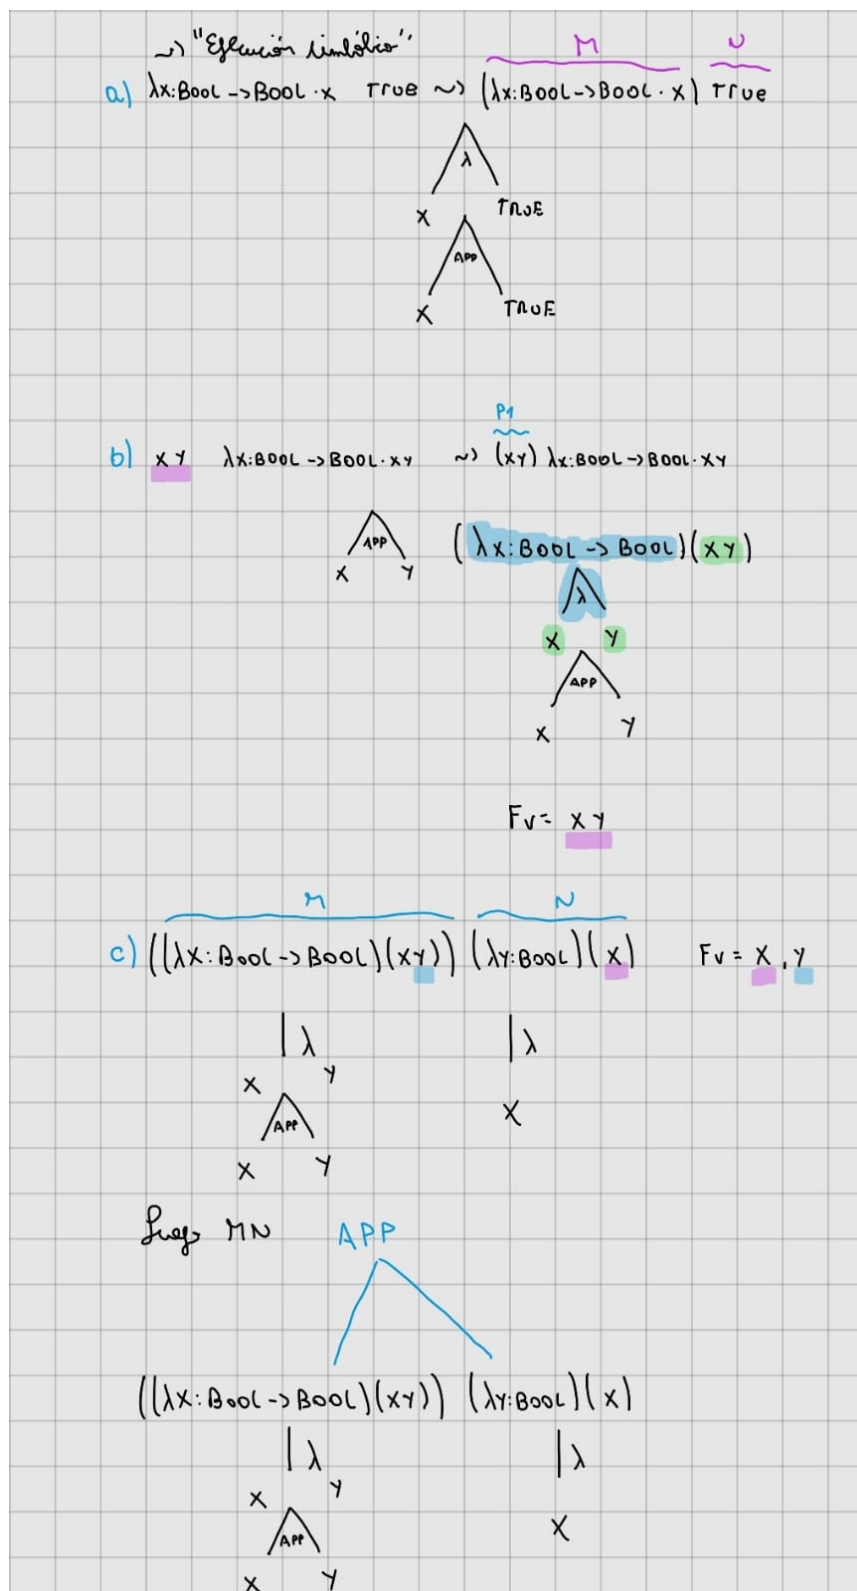 ~> "Ejecución simbólica"
M N
a) λx:BOOL->BOOL·x True ~> (λx:BOOL->BOOL·x) True
λ
X TRUE
APP
X TRUE
P1
b) XY λx:BOOL->BOOL·XY ~> (XY) λx:BOOL->BOOL·XY
APP (λx:BOOL->BOOL)(XY)
X Y λ
X Y
APP
X Y
Fv= XY
M N
c) ((λX:BOOL->BOOL)(XY)) (λY:BOOL)(X) Fv= X,Y
λ λ
X Y
APP X
X Y
Luego MN APP
((λX:BOOL->BOOL)(XY)) (λY:BOOL)(X)
λ λ
X Y
APP X
X Y